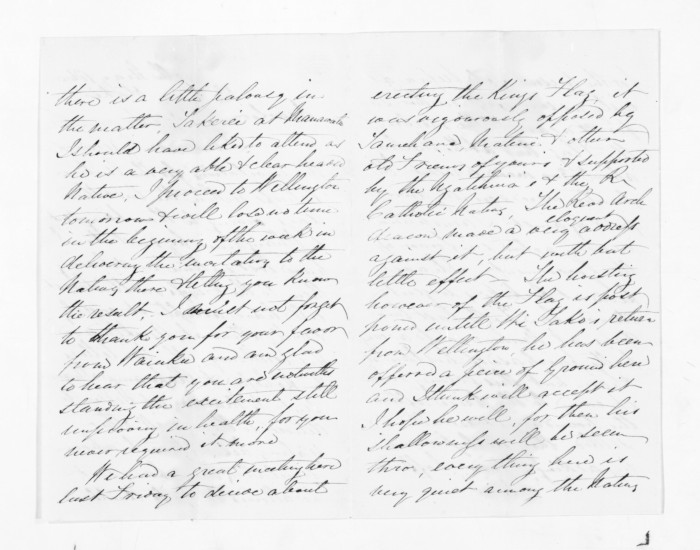 there is a little jealousy in
the matter. Takerei at
I should have liked to attend, as
he is a very able & clear headed
Native, I proceed to Wellington
tomorrow & will lose no time
in the begining of the week in
delivering the invitation to the
Natives there & letting you know
the result. I must not forget
to thank you for your favor
from Waiuku and am glad
to hear that you are notwith
standing the excitement still
improving in health, for you
never required it more
We had a great meeting here
last Friday to decide about
erecting the Kings Flag, it
was vigourously opposed by
Tamehana, Matene & other
old Friends of yours & supported
by the Ngatihuia's & the R
Catholic Natives, The Rev'd Arch
deacon made a very eloquent address
against it, but with but
little effect – The hoisting
however of the Flag is post
poned untill Wi Tako's return
from Wellington, he has been
offered a peice of Ground here
and I think will accept it
I hope he will, for then his
shallowness will be seen
thro, everything here is
very quiet among the Natives